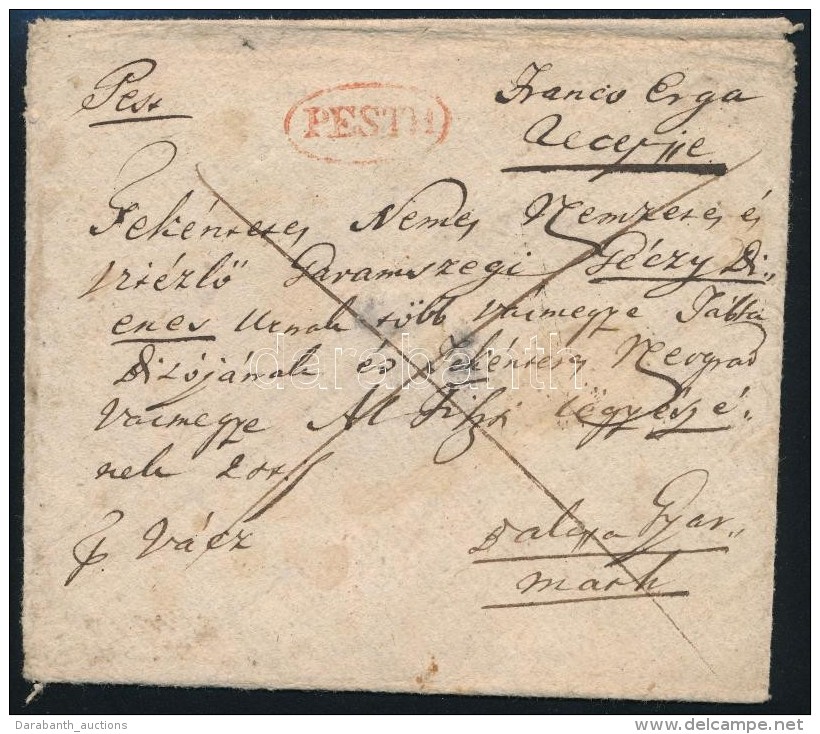 Pest
PESTH
Franco Erga
Recepisse
Tekéntetes Nemes Nemzetes és
Vitézlő Garamszegi Géczy Di„
enes Urnak több Vármegye Tábla
Bírójának és Tekéntetes Neograd
Vármegye Al Ügyészé„
nek
p. Vácz
Balassa Gyar„
math
darabanth
Darabanth_auctions
www.delcampe.net